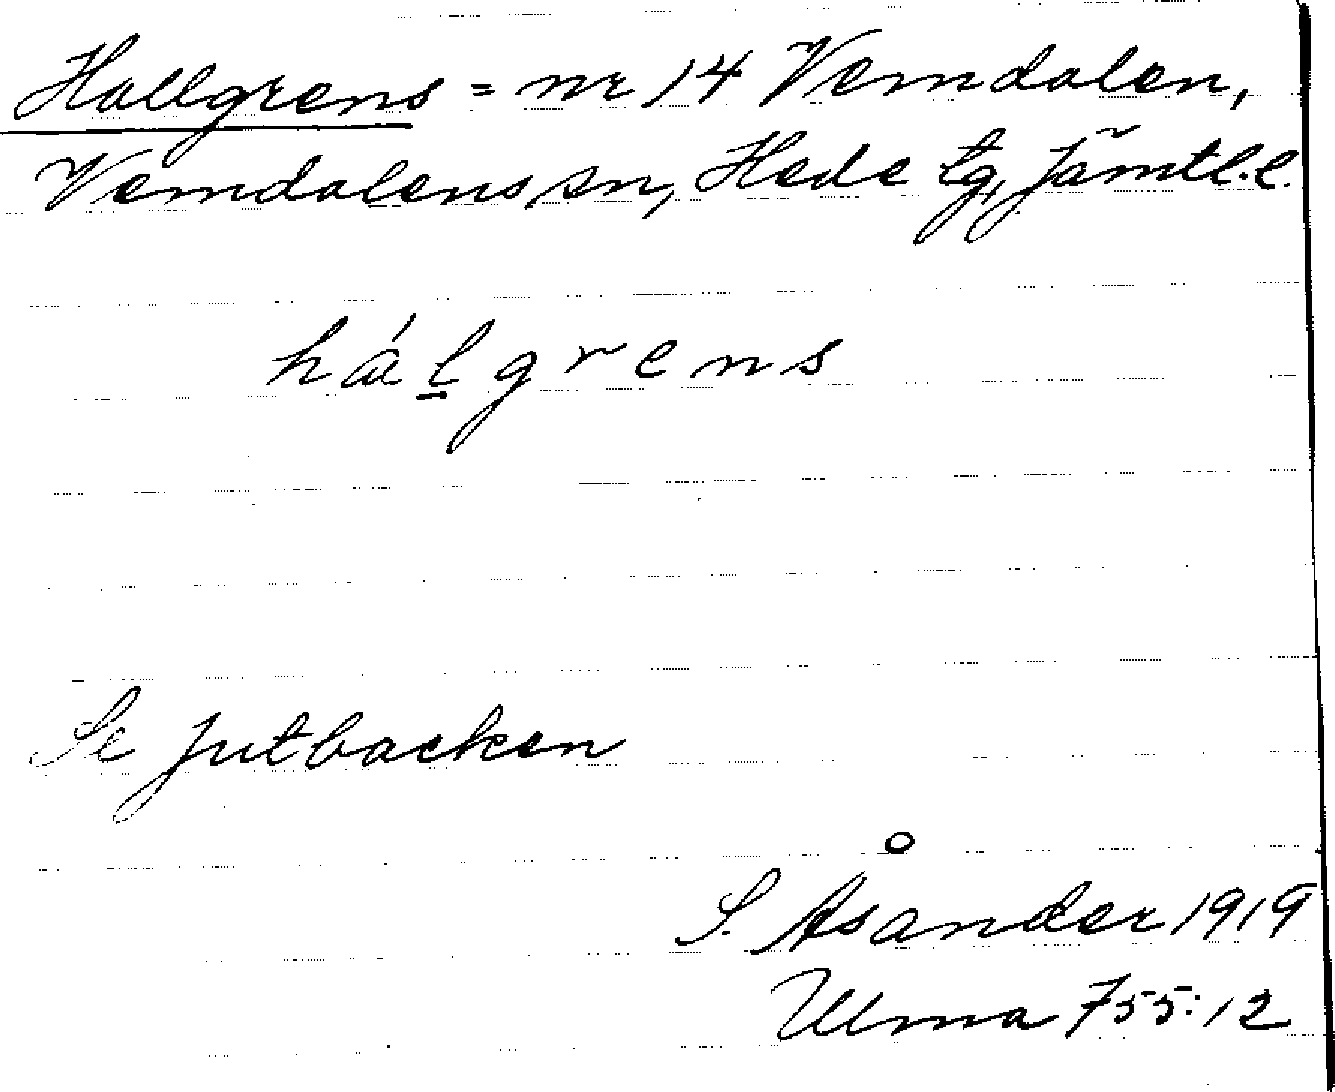 Hallgrens = nr 14 Vemdalen,
Vemdalens sn, Hede tg, Jämtl.l.
hálgrens
Se Jutbacken
S. Åsander 1919
Ulma 755:12